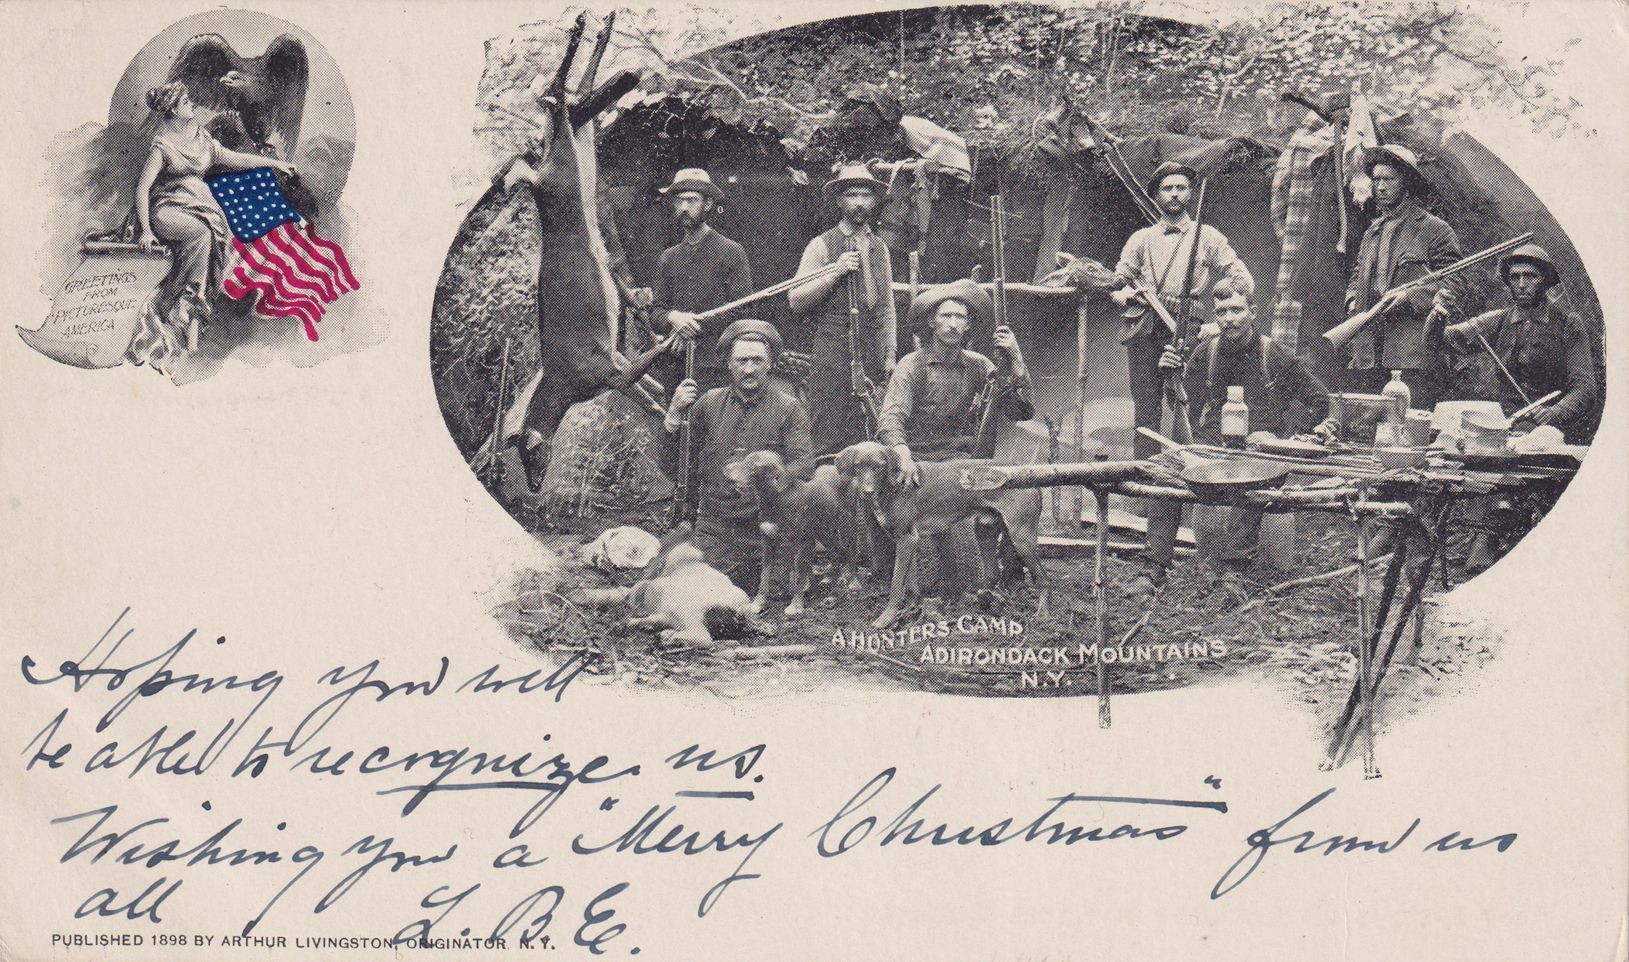 GREETINGS
FROM
PICTURESQUE
AMERICA
A HUNTERS CAMP
ADIRONDACK MOUNTAINS
N.Y.
Hoping you will
be able to recognize us.
Wishing you a "Merry Christmas" from us
all L. B. E.
PUBLISHED 1898 BY ARTHUR LIVINGSTON, ORIGINATOR N. Y.